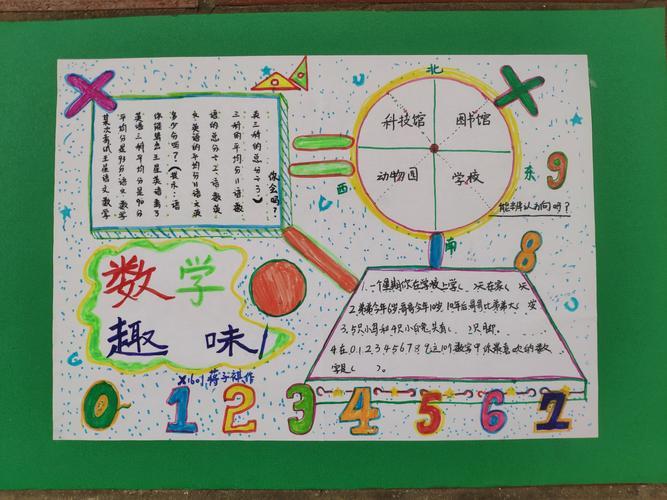 某次考试王星语文数学
平均分是93分语文数学
英语三科平均分是90分
你能算出王星英语考了
多少分吗？
三科的平均分
英三科的总分÷3）
你会吗？
北
科技馆 图书馆
西 东
动物园 学校
南
能辨认方向吗？
9
8
数学
趣味
1、一个星期你在学校上学（ ）天在家（ ）天
2.弟弟今年6岁,哥哥今年10岁,10年后哥哥比弟弟大( )岁
3、5只小耳和4只小白兔共有( )只脚.
4.在0.1.2.3.4.5.6.7.8.9这10个数字中,你最喜欢的数
字是( )。
0 1 2 3 4 5 6 7